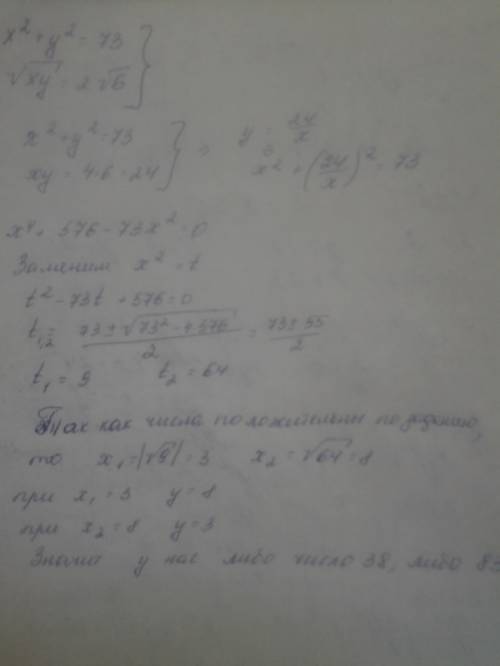 x² + y² = 73 }
√xy = 2√6
x² + y² = 73 } ⇒ y = 24/x
xy = 4·6 = 24 x² + (24/x)² = 73
x⁴ + 576 - 73x² = 0
Заменим x² = t
t² - 73t + 576 = 0
t₁,₂ = (73 ± √(73² - 4·576))/2 = (73 ± 55)/2
t₁ = 9 t₂ = 64
Так как числа положительны по заданию,
то x₁ = |√9| = 3 x₂ = √64 = 8
при x₁ = 3 y = 8
при x₂ = 8 y = 3
Значит у нас либо число 38, либо 83